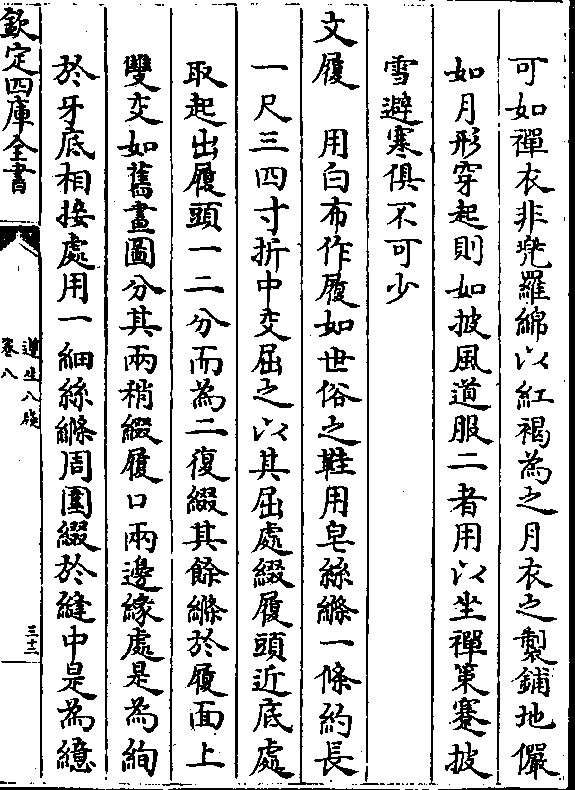 可如禪衣非兜羅綿以紅褐為之月衣之製鋪地儼
如月形穿起則如披風道服二者用以坐禪策蹇披
雪避寒俱不可少
文履　用白布作履如世俗之鞋用皂絲絛一條約長
一尺三四寸折中交屈之以其屈處綴履頭近底處
取起出履頭一二分而為二復綴其餘絛於履面上
雙交如舊畫圖分其兩稍綴履口兩邊緣處是為絇
於牙底相接處用一細絲絛周圍綴於縫中是為繶
欽定四庫全書
遵生八牋
卷八
三十二